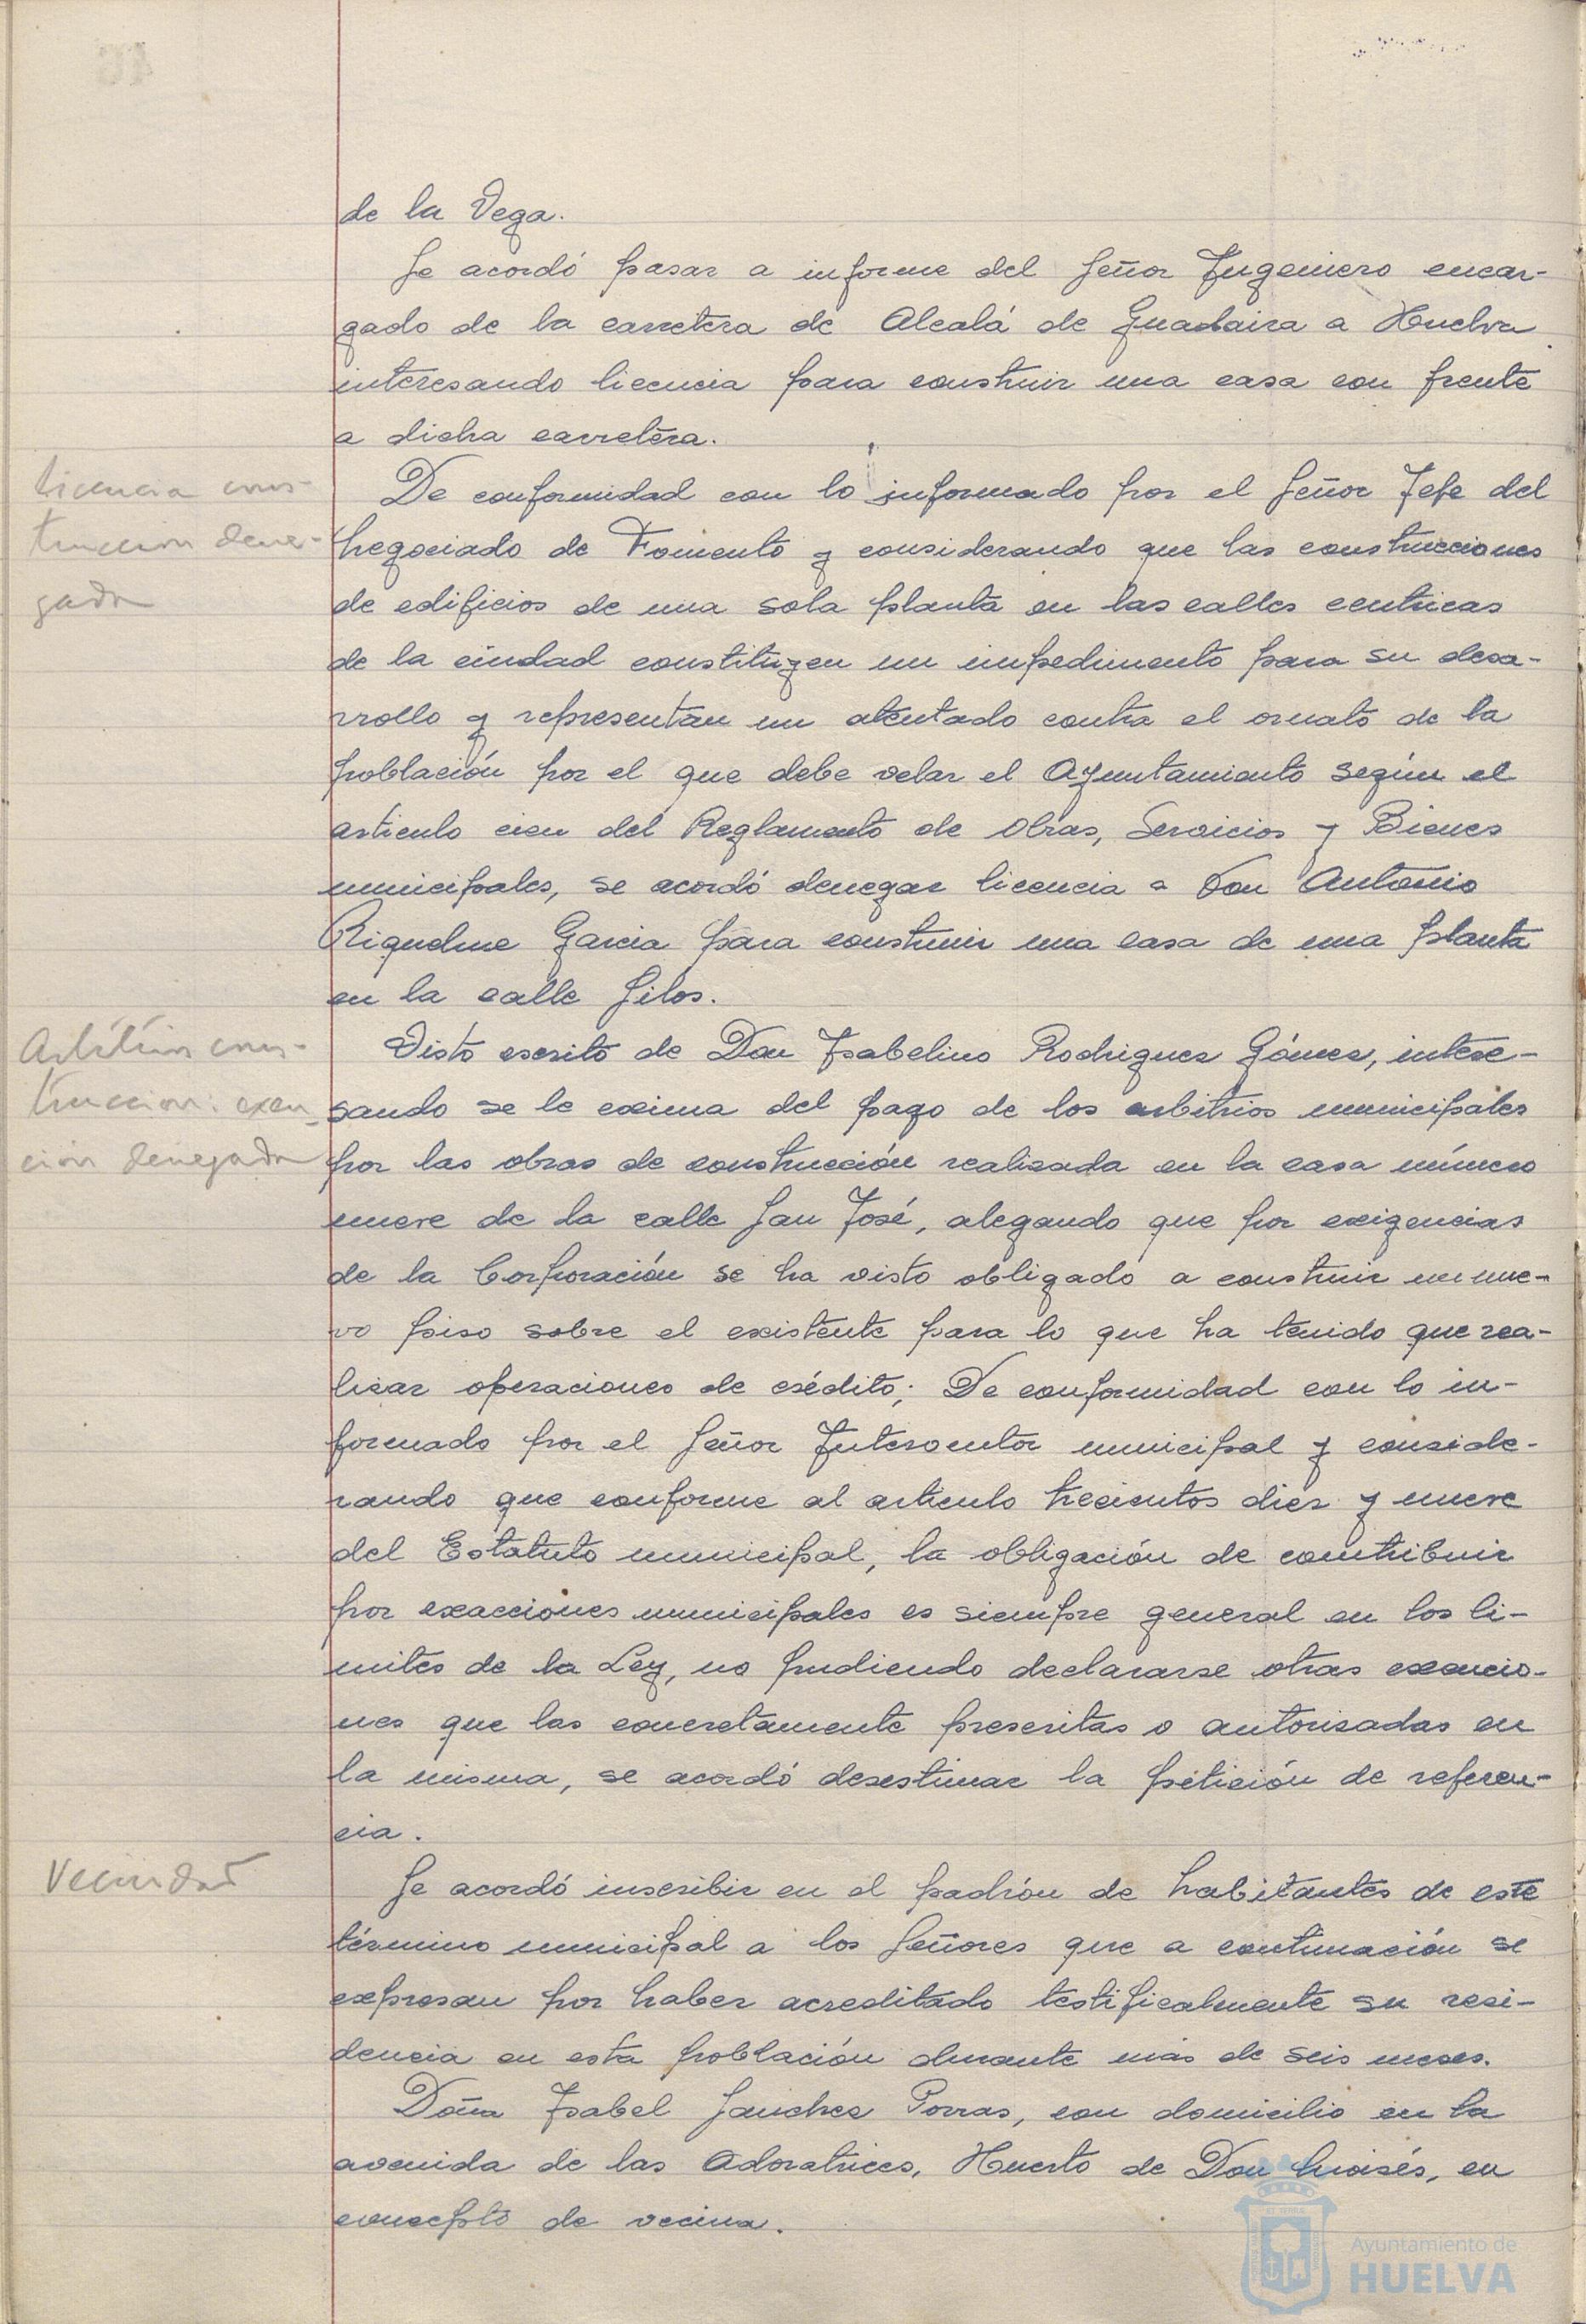 de la Vega.
Se acordó pasar a informe del Señor Ingeniero encar-
gado de la carretera de Alcalá de Guadaira a Huelva
interesando licencia para construir una casa con frente
a dicha carretera.
Licencia cons-
truccion dene-
gada
De conformidad con lo informado por el Señor Jefe del
Negociado de Fomento y considerando que las construcciones
de edificios de una sola planta en las calles centricas
de la ciudad constituyen un impedimento para su desa-
rrollo y representan un atentado contra el ornato de la
población por el que debe velar el Ayuntamiento según el
articulo cien del Reglamento de Obras, Servicios y Bienes
municipales, se acordó denegar licencia a Don Antonio
Riquelme Garcia para construir una casa de una planta
en la calle Silos.
Arbitrios cons-
truccion: exen
cion denegada
Visto escrito de Don Isabelino Rodriguez Gómez, intere-
sando se le exima del pago de los arbitrios municipales
por las obras de construcción realizada en la casa número
nueve de la calle San José, alegando que por exigencias
de la Corporación se ha visto obligado a construir un nue-
vo piso sobre el existente para lo que ha tenido que rea-
lizar operaciones de crédito; De conformidad con lo in-
formado por el Señor Interventor municipal y conside-
rando que conforme al articulo trecientos diez y nueve
del Estatuto municipal, la obligación de contribuir
por exacciones municipales es siempre general en los li-
mites de la Ley, no pudiendo declararse otras exencio-
nes que las concretamente prescritas o autorizadas en
la misma, se acordó desestimar la petición de referen-
cia.
Vecindad
Se acordó inscribir en el padrón de habitantes de este
término municipal a los Señores que a continuación se
expresan por haber acreditado testificalmente su resi-
dencia en esta población durante mas de seis meses.
Doña Isabel Sanchez Porras, con domicilio en la
avenida de las Adoratrices, Huerto de Don Moisés, en
concepto de vecina.
Ayuntamiento de
HUELVA